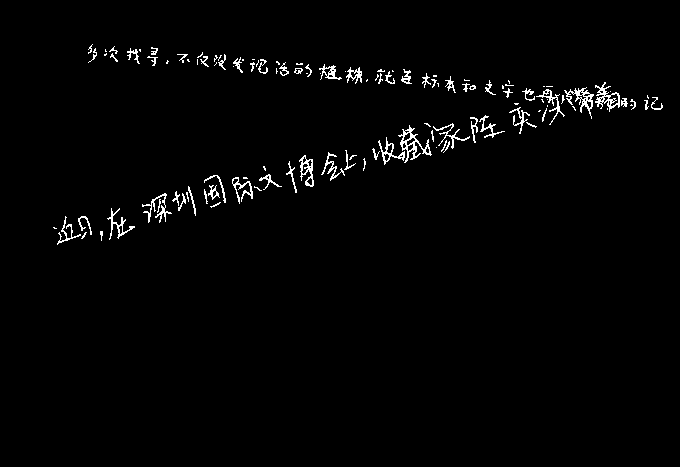 多次找寻,不仅没发现活的植株,就连标本和文字也再没有的记
近日,在深圳国际文博会上,收藏家陈奕滨带着